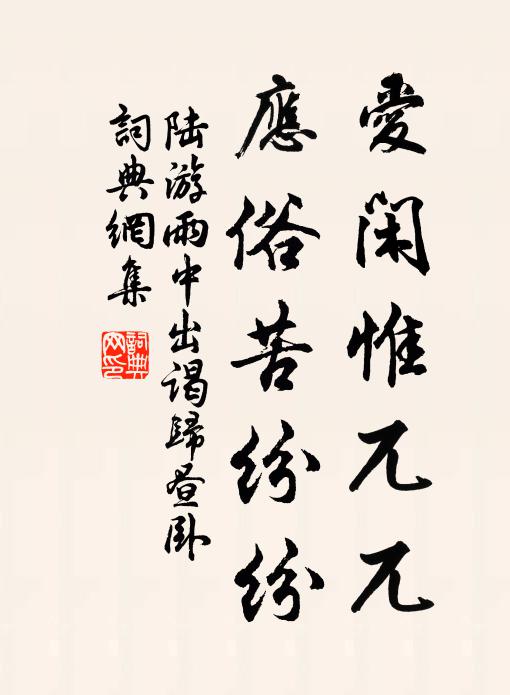 愛閑惟兀兀
應俗苦紛紛
陆游雨中出谒歸晝臥
詞典網集
詞典網印